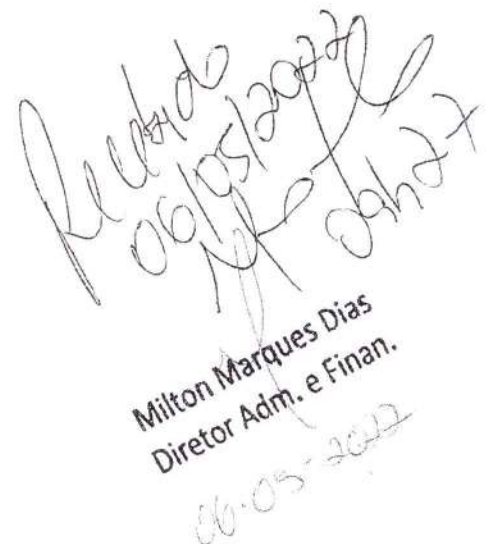 Recebido
06/05/2022
09h27
Milton Marques Dias
Diretor Adm. e Finan.
06-05-2022